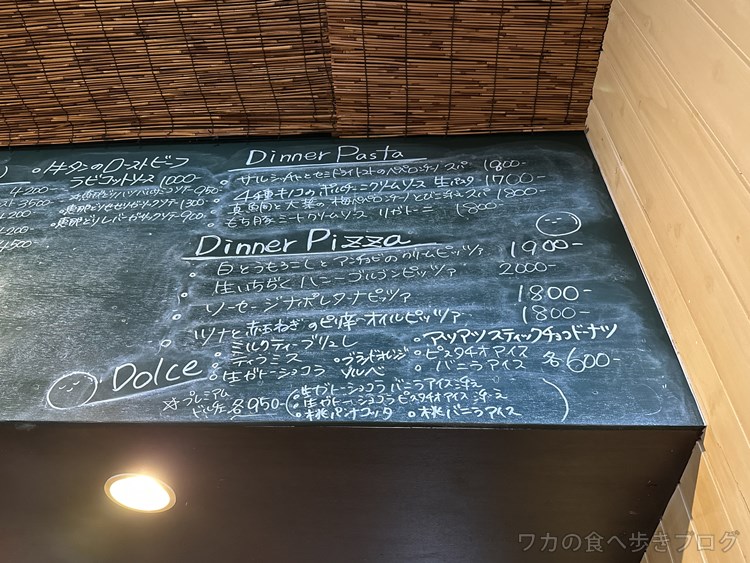 牛タンのローストビーフ
ラビゴットソース 1000-
4200-
3500-
1200-
4500-
Dinner Pasta
サルシッチャとセミドライトマトのペペロンチーノ スパ 1800-
4種キノコのポルチーニクリームソース 生パスタ 1700-
真鯛と大葉の梅ペペロンチーノとびこ添え スパ 1800-
もち豚ミートクリームソース リガトーニ 1800-
Dinner Pizza
白とうもろこしとアンチョビのクリームピッツァ 1900-
生いちぢくハニーゴルゴンピッツァ 2000-
ソーセージナポレターナピッツァ 1800-
ツナと赤玉ねぎのピリ辛オイルピッツァ 1800-
Dolce
ミルクティーブリュレ
ティラミス
生ガトーショコラ
ブラッドオレンジ
ソルベ
アツアツスティックチョコドーナツ
ピスタチオアイス
バニラアイス
各600-
☆プレミアム
ドルチェ 各950-
生ガトーショコラ バニラアイス添え
生ガトーショコラ ピスタチオアイス添え
桃パンナコッタ
桃バニラアイス
ワカの食べ歩きブログ